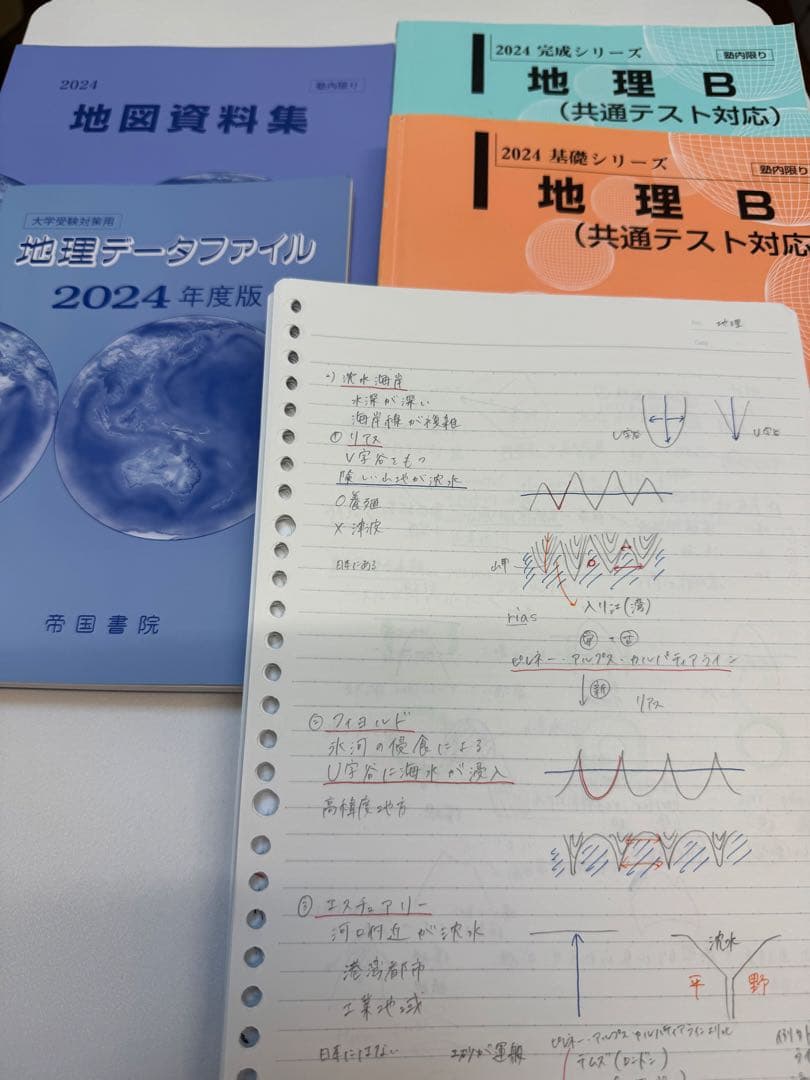 2024
塾内限り
地図資料集
2024 完成シリーズ
塾内限り
地理 B
(共通テスト対応)
2024 基礎シリーズ
塾内限り
地理 B
(共通テスト対応
大学受験対策用
地理データファイル
2024年度版
帝国書院
No.
地理
Date
沈水海岸
水深が深い
海岸線が複雑
U字谷
V字谷
① リアス
V字谷をもつ
険しい山地が沈水
○養殖
×津波
日本にある
山岬
入り江(湾)
rias
ピレネー・アルプス・カルパティアライン
新
リアス
② フィヨルド
氷河の侵食による
U字谷に海水が浸入
高緯度地方
③ エスチュアリー
河口付近が沈水
港湾都市
工業地域
沈水
平 野
日本にはない
ピレネー・アルプス・カルパティアライン
テムズ(ロンドン)